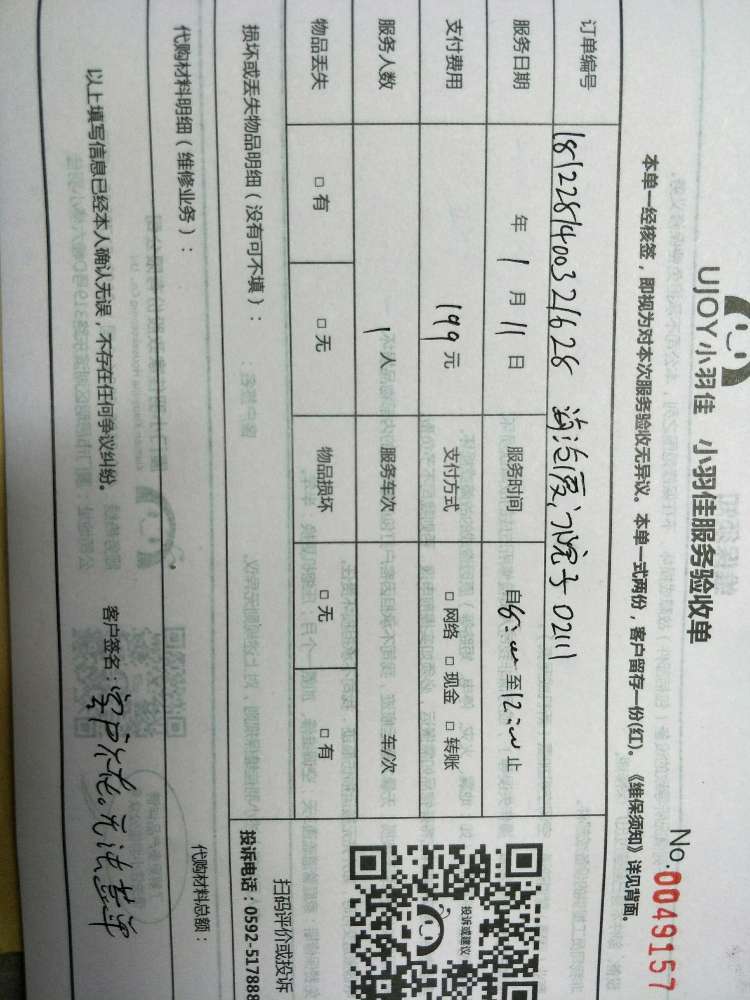 UJOY小羽佳 小羽佳服务验收单
No.0049157
本单一经核签，即视为对本次服务验收无异议。本单一式两份，客户留存一份(红)。《维保须知》详见背面。
订单编号 1812281400321628 海沧厦门院子0211
服务日期 年 1 月 11 日 服务时间 自8:00至12:00止
支付费用 199元 支付方式 □ 网络 □ 现金 □ 转账
服务人数 1人 服务车次 车/次
物品丢失 □ 有 □ 无 物品损坏 □ 无 □ 有
投诉或建议
扫码评价或投诉
投诉电话：0592-517888
损坏或丢失物品明细（没有可不填）：
代购材料明细（维修业务）：
代购材料总额：
以上填写信息已经本人确认无误，不存在任何争议纠纷。 客户签名：客户不在。无法签单